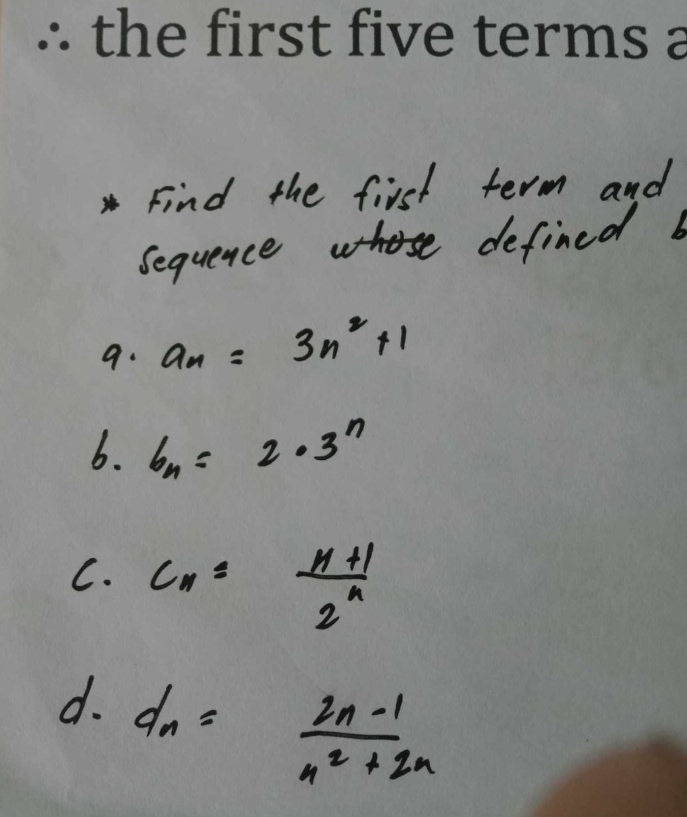 ∴ the first five terms a
* Find the first term and
sequence whose defined b
a. aₙ = 3n² + 1
b. bₙ = 2 • 3ⁿ
c. cₙ = (n + 1)/2ⁿ
d. dₙ = (2n - 1)/(n² + 2n)